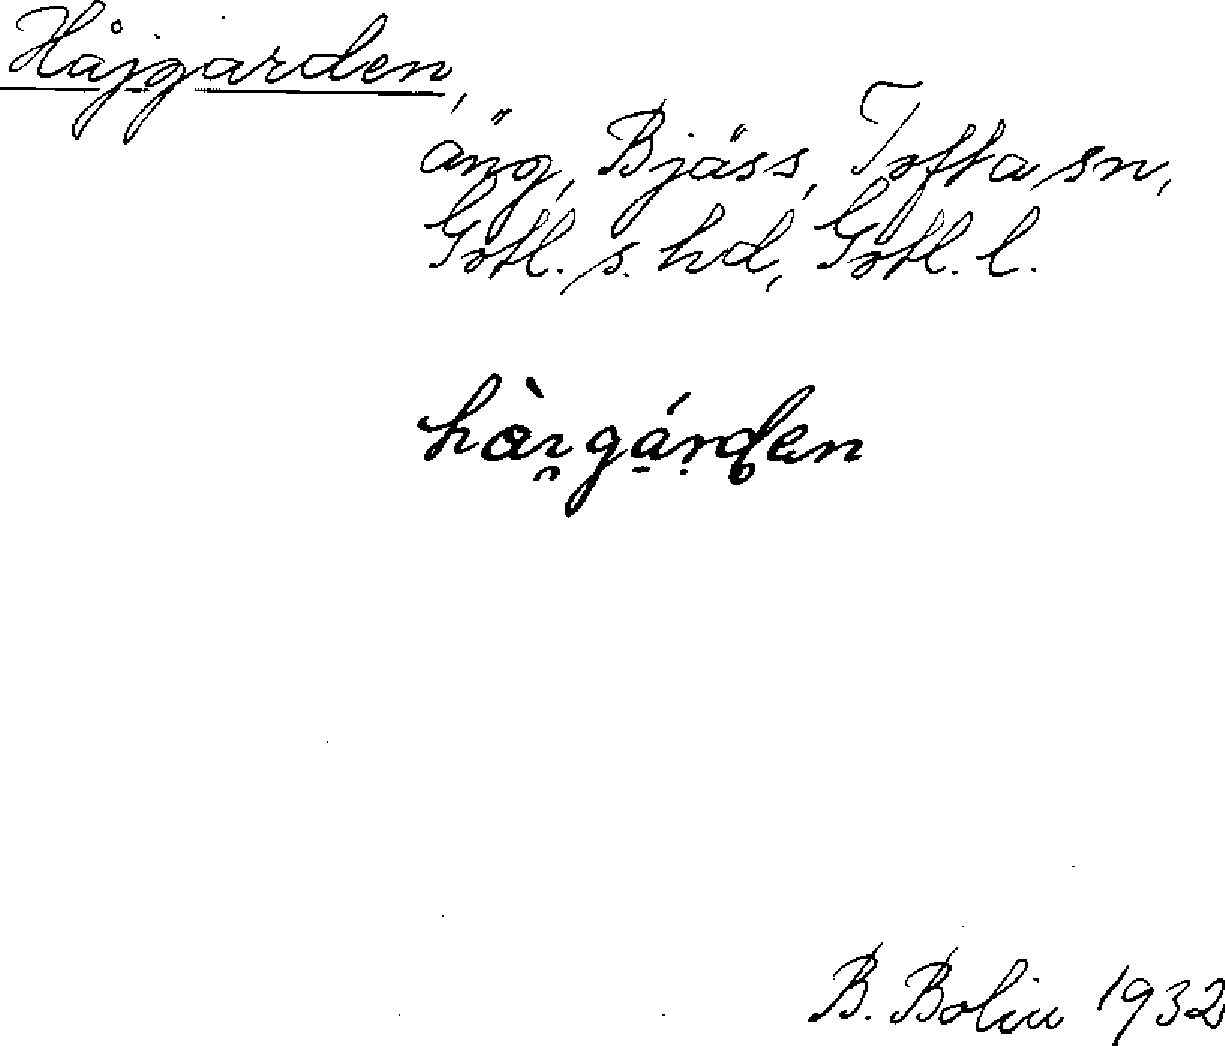 Håjgarden,
äng, Bjäss, Tofta sn,
Gotl. s. hd, Gotl. l.
B. Bolin 1932